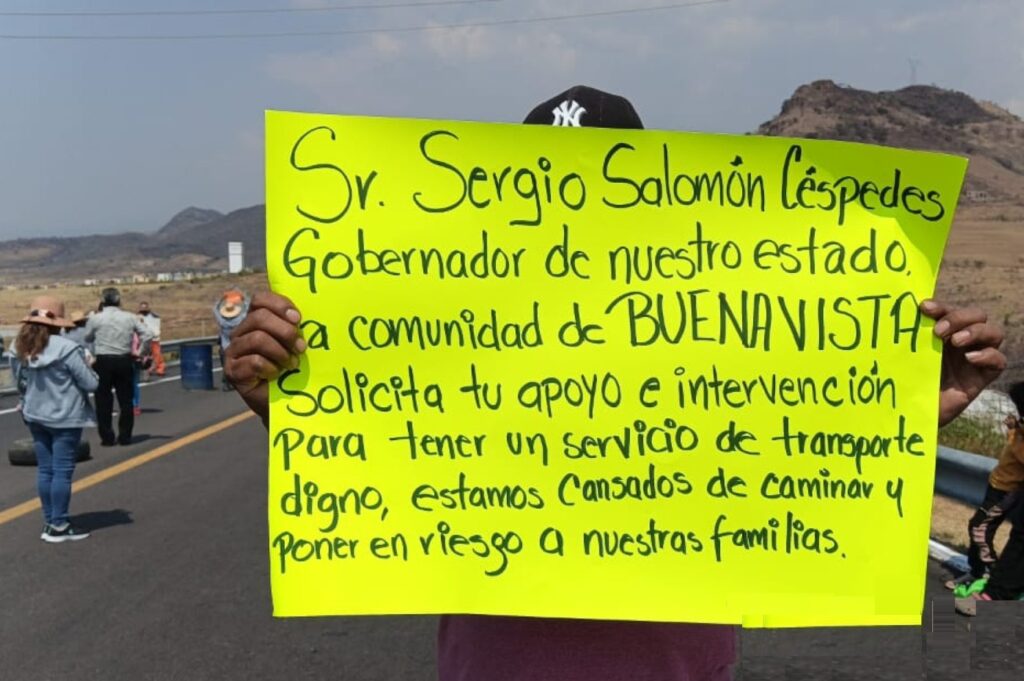 NY
Sr. Sergio Salomón Céspedes
Gobernador de nuestro estado.
a comunidad de BUENAVISTA
Solicita tu apoyo e intervención
para tener un servicio de transporte
digno, estamos cansados de caminar y
poner en riesgo a nuestras familias.